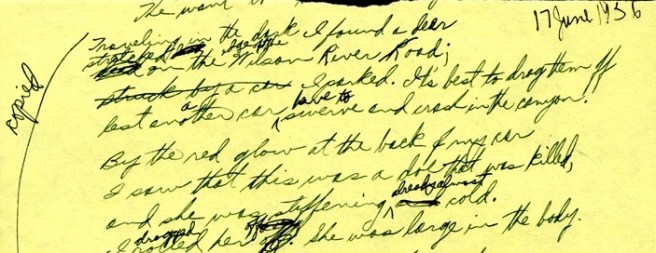 The want of
17 June 1956
Traveling in the dark I found a deer
stretched dead along the
on the Wilson River Road;
struck by a car I parked. It's best to drag them off
lest another car have to swerve and crash in the canyon.
copied
By the red glow at the back of my car
I saw that this was a doe that was killed,
and she was stiffening already, almost cold.
I dragged her off. She was large in the body.